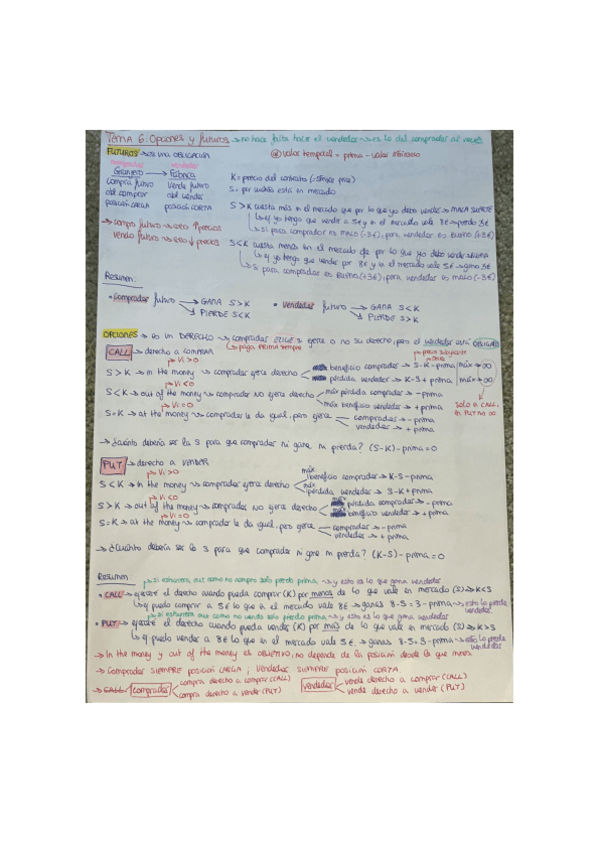 TEMA 6: Opciones y futuros → no hace falta hace el vendedor → es lo del comprador al revés
FUTUROS → es una OBLIGACIÓN
⊛ valor temporal = prima - valor intrínseco
comprador vendedor
Granjero → Fábrica
compra futuro vende futuro
obl comprar obl vender
posición LARGA posición CORTA
K = precio del contrato (→ strike price)
S = por cuánto está en mercado
S > K cuesta más en el mercado que por lo que yo debo vender → MALA SUERTE
↳ si yo tengo que vender a 5€ y en el mercado vale 8€ → pierdo 3€
↳ si para comprador es MALO (-3€), para vendedor es BUENO (+3€)
→ compro futuro → creo ↑ precios
Vendo futuro → creo ↓ precios
S < K cuesta menos en el mercado de por lo que yo debo vender
↳ si yo tengo que vender por 8€ y en el mercado vale 5€ → gano 3€
↳ si para comprador es BUENO (+3€), para vendedor es MALO (-3€)
Resumen:
• Comprador futuro → GANA S > K
→ PIERDE S < K
• Vendedor futuro → GANA S < K
→ PIERDE S > K
OPCIONES → es un DERECHO → comprador ELIGE si ejerce o no su derecho, pero el vendedor está OBLIGADO
↳ paga PRIMA siempre
CALL → derecho a COMPRAR
↳ Vi > 0
S > K → in the money → comprador ejerce derecho
beneficio comprador → S - K - prima | máx → ∞
pérdida vendedor → K - S + prima | máx → ∞
↳ Vi < 0
S < K → out of the money → comprador NO ejerce derecho
máx pérdida comprador → - prima
máx beneficio vendedor → + prima
↳ Vi = 0
S = K → at the money → comprador le da igual, pero ejerce
comprador → - prima
vendedor → + prima
SOLO a CALL,
en PUT no ∞
→ ¿Cuánto debería ser la S para que comprador ni gane ni pierda? (S-K) - prima = 0
PUT → derecho a VENDER
↳ Vi > 0
S < K → in the money → comprador ejerce derecho
máx beneficio comprador → K - S - prima
máx pérdida vendedor → S - K + prima
↳ Vi < 0
S > K → out of the money → comprador NO ejerce derecho
máx pérdida comprador → - prima
máx beneficio vendedor → + prima
↳ Vi = 0
S = K → at the money → comprador le da igual, pero ejerce
comprador → - prima
vendedor → + prima
→ ¿Cuánto debería ser la S para que comprador ni gane ni pierda? (K-S) - prima = 0
Resumen:
↳ si estuviera out como no compro solo pierdo prima → y esto es lo que gana vendedor
• CALL → ejerceré el derecho cuando pueda comprar (K) por menos de lo que vale en mercado (S) → K < S
↳ si puedo comprar a 5€ lo que en el mercado vale 8€ → ganas 8-5 = 3 - prima → esto lo pierde vendedor
↳ si estuviera out como no vendo solo pierdo prima → y esto es lo que gana vendedor
• PUT → ejerceré el derecho cuando pueda vender (K) por más de lo que vale en mercado (S) → K > S
↳ si puedo vender a 8€ lo que en el mercado vale 5€ → ganas 8-5 = 3 - prima → esto lo pierde vendedor
→ In the money y out of the money es OBJETIVO, no depende de la posición desde la que mires
→ Comprador SIEMPRE POSICIÓN LARGA; Vendedor SIEMPRE POSICIÓN CORTA.
→ CALL comprador
compra derecho a comprar (CALL)
compra derecho a vender (PUT)
vendedor
vende derecho a comprar (CALL)
vende derecho a vender (PUT)